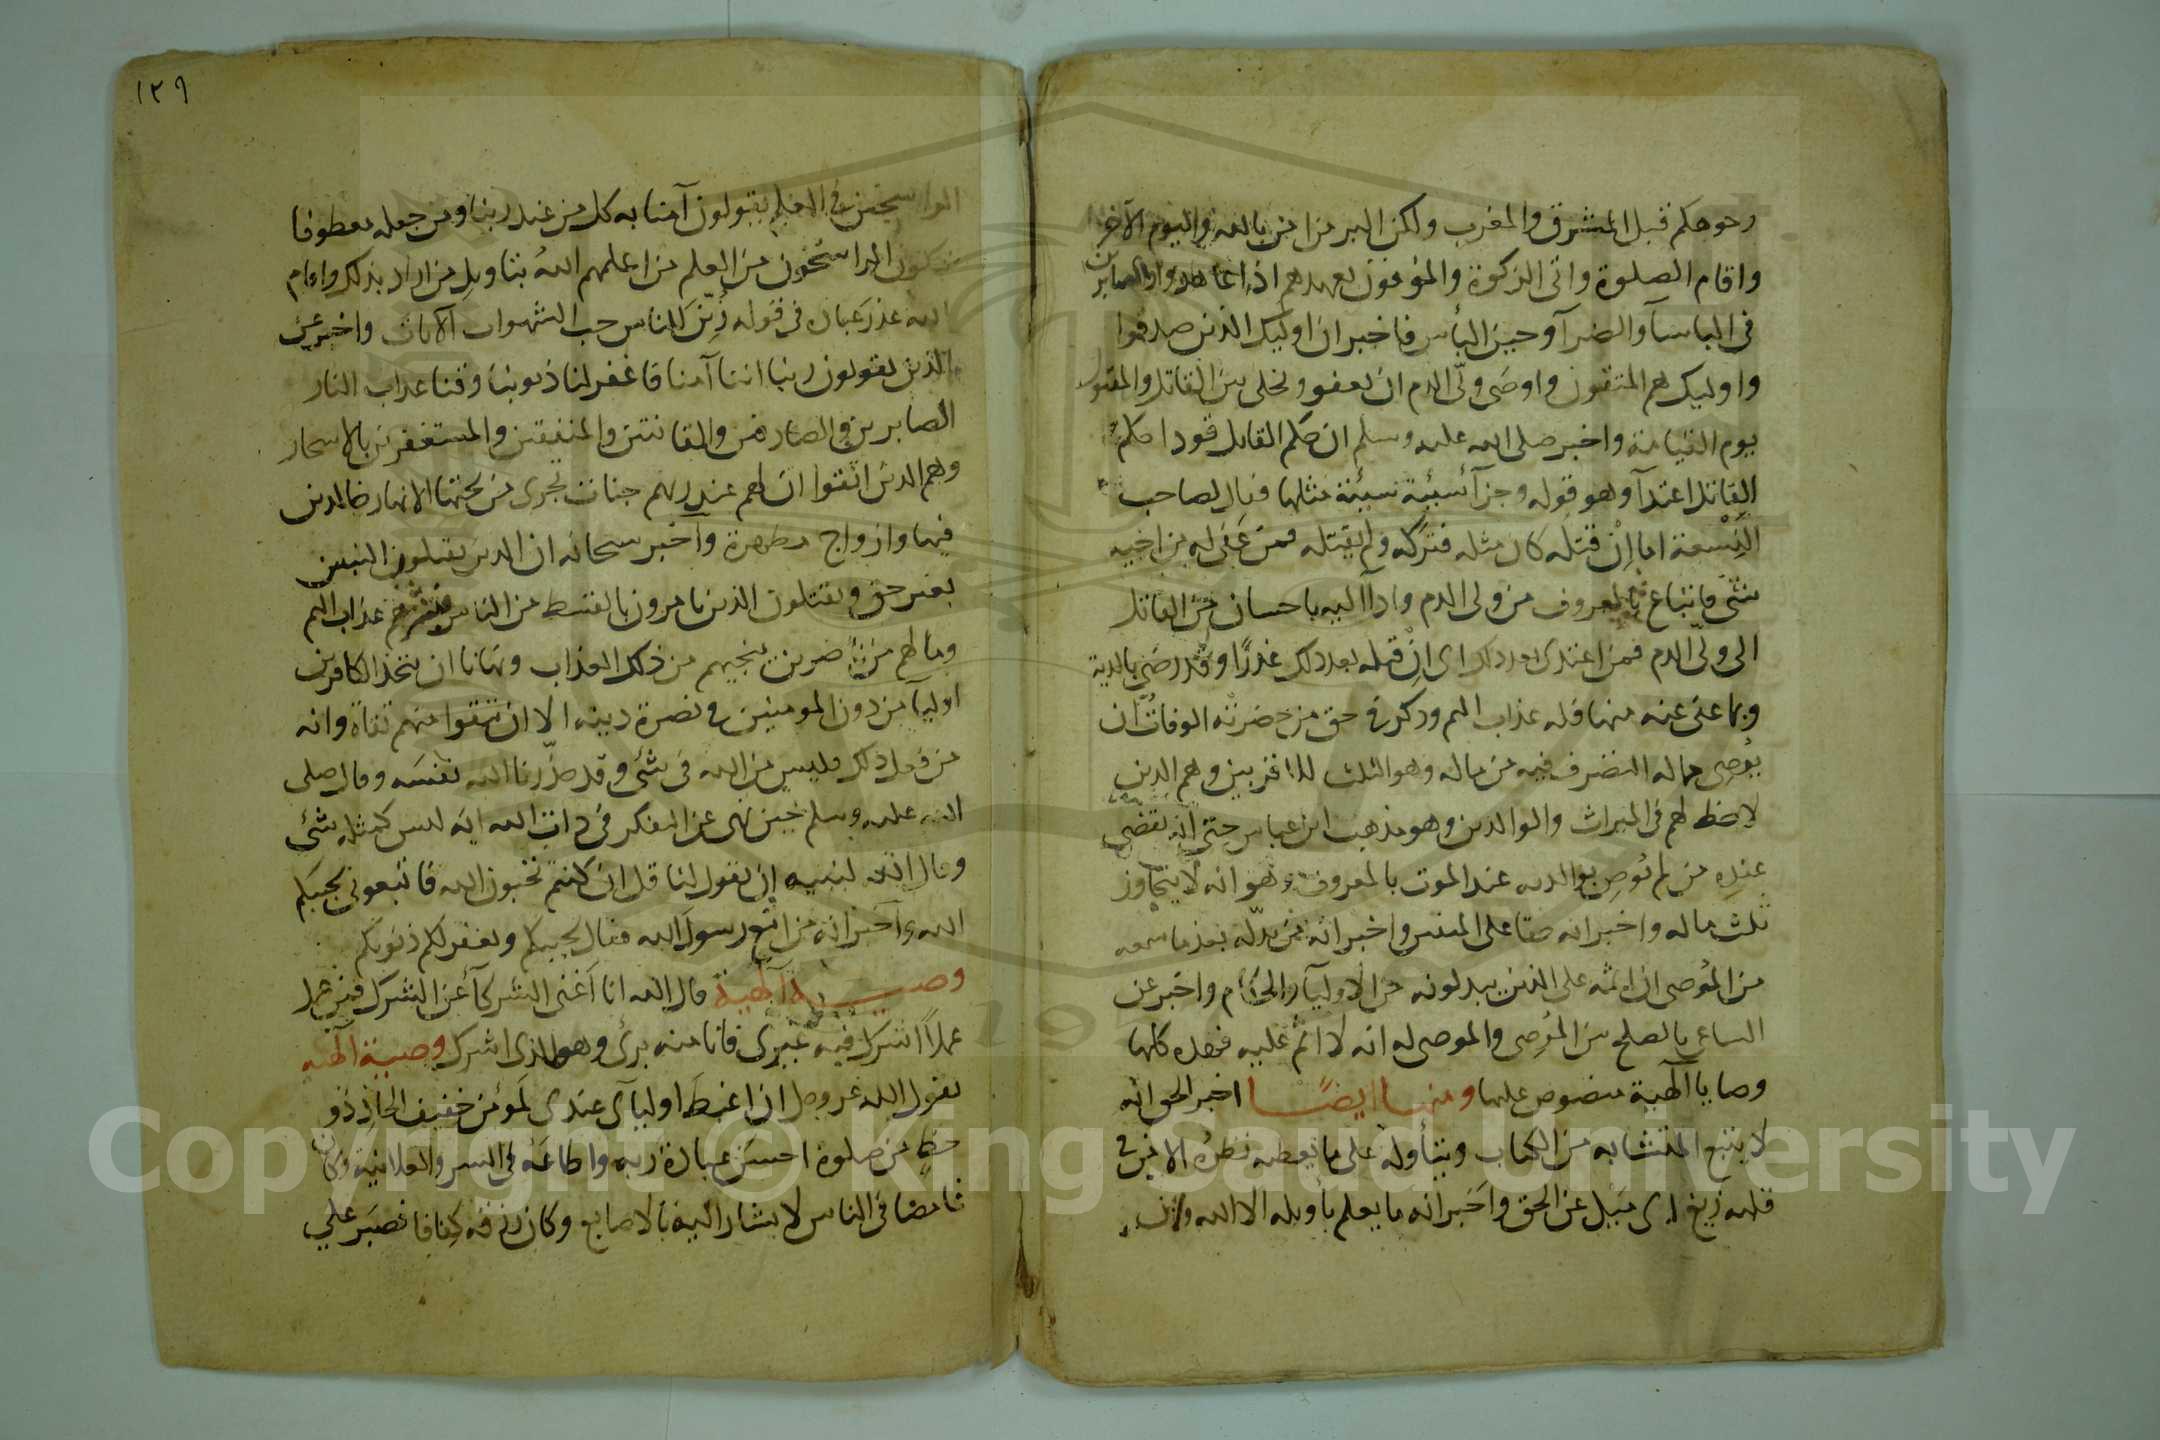 وجوهكم قبل المشرق والمغرب ولكن البر من امن بالله واليوم الآخر
واقام الصلوة واتى الزكوة والموفون بعهدهم اذا عاهدوا والصابرين
فى الباسآ والضرآ وحين البأس فاخبر ان اوليك الذين صدقوا
واوليك هم المتقون واوصى ولّى الدم ان يعفو ويخلى بين القاتل والمقتول
يوم القيامة واخبر صلى الله عليه وسلم ان حكم القاتل قودا حكم
القاتل اعتدآ وهو قوله وجزآ سيئة سيئة مثلها فقال لصاحب
النِسْعة اما اِنْ قتله كان مثله فتركه ولم يقتله فمن عفى له من اخيه
شئ فاتباع بالمعروف من ولى الدم وادآ اليه باحسان من القاتل
الى ولّى الدم فمن اعتدى بعد ذلك اى اِنْ قتله بعد ذلك غدرًا وقد رضى بالدية
وبما عفى عنه منها فله عذاب اليم وذكر فى حق من حضرته الوفاة ان
يوصى بماله التصرف فيه من ماله وهو الثلث للاقربين وهم الذين
لا حظ لهم فى الميراث والوالدين وهو مذهب ابن عباس حتى انه يقضى
عنده من لم يوصِ بوالديه عند الموت بالمعروف وهو انه لا يتجاوز
ثلث ماله واخبر انه حقا على المتقين واخبر انه من بدّله بعد ما سمعه
من الموصى ان اثمه على الذين يبدلونه من الاوليآ والحكام واخبر عن
الساعى بالصلح بين الموصى والموصى له انه لا اثم عليه فهذه كلها
وصايا آلهية منصوص عليها ومنها ايضًا اخبر الحق انه
لا يتبع المتشابه من الكتاب ويتأوله على ما يعطيه نظره الا من فى
قلبه زيغ اى ميل عن الحق واخبر انه ما يعلم تأويله الا الله وان
١٣٩
الراسخين فى العلم يقولون آمنا به كل من عند ربنا ومن جعله معطوفا
فيكون الراسخون من العلم من اعلمهم الله بتاويل من اراد بذلك واقام
الله عذر عباده فى قوله زُيّن للناس حب الشهوات الآيات واخبر عن
الذين يقولون ربنا اننا آمنا فاغفر لنا ذنوبنا وقنا عذاب النار
الصابرين والصادقين والقانتين والمنفقين والمستغفرين بالاسحار
وهم الذين اتقوا ان لهم عند ربهم جنات تجرى من تحتها الانهار خالدين
فيها وازواج مطهرة واخبر سبحانه ان الذين يقتلون النبيين
بغير حق ويقتلون الذين يامرون بالقسط من الناس فبشرهم عذاب اليم
وما لهم من ناصرين ينجيهم من ذلك العذاب ونهانا ان نتخذ الكافرين
اوليآ من دون المومنين فى نصرة دينه الا ان تتقوا منهم تقاة وانه
من فعل ذلك فليس من الله فى شئ وقد حذّرنا الله نفسه وقال صلى
الله عليه وسلم حين نهى عن التفكر فى ذات الله انه ليس كمثله شئ
وقال الله لنبيه ان يقول لنا قل ان كنتم تحبون الله فاتبعونى يحببكم
الله واخبر انه من اتبع رسول الله فقال يحببكم ويغفر لكم ذنوبكم
وصية آلهية قال الله انا اغنى الشركآ عن الشرك فمن عمل
عملاً اشرك فيه غيرى فانا منه برئ وهو للذى اشرك وصية آلهيه
يقول الله عز وجل ان اغبط اوليآى عندى لَمؤمن خفيف الحاذ ذو
حظ من صلوة احسن عبادة ربه واطاعه فى السر والعلانية وكان
غامضا فى الناس لا يشار اليه بالاصابع وكان رزقه كفافا فصبر على